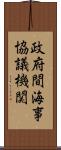 政府間海事
協議機関